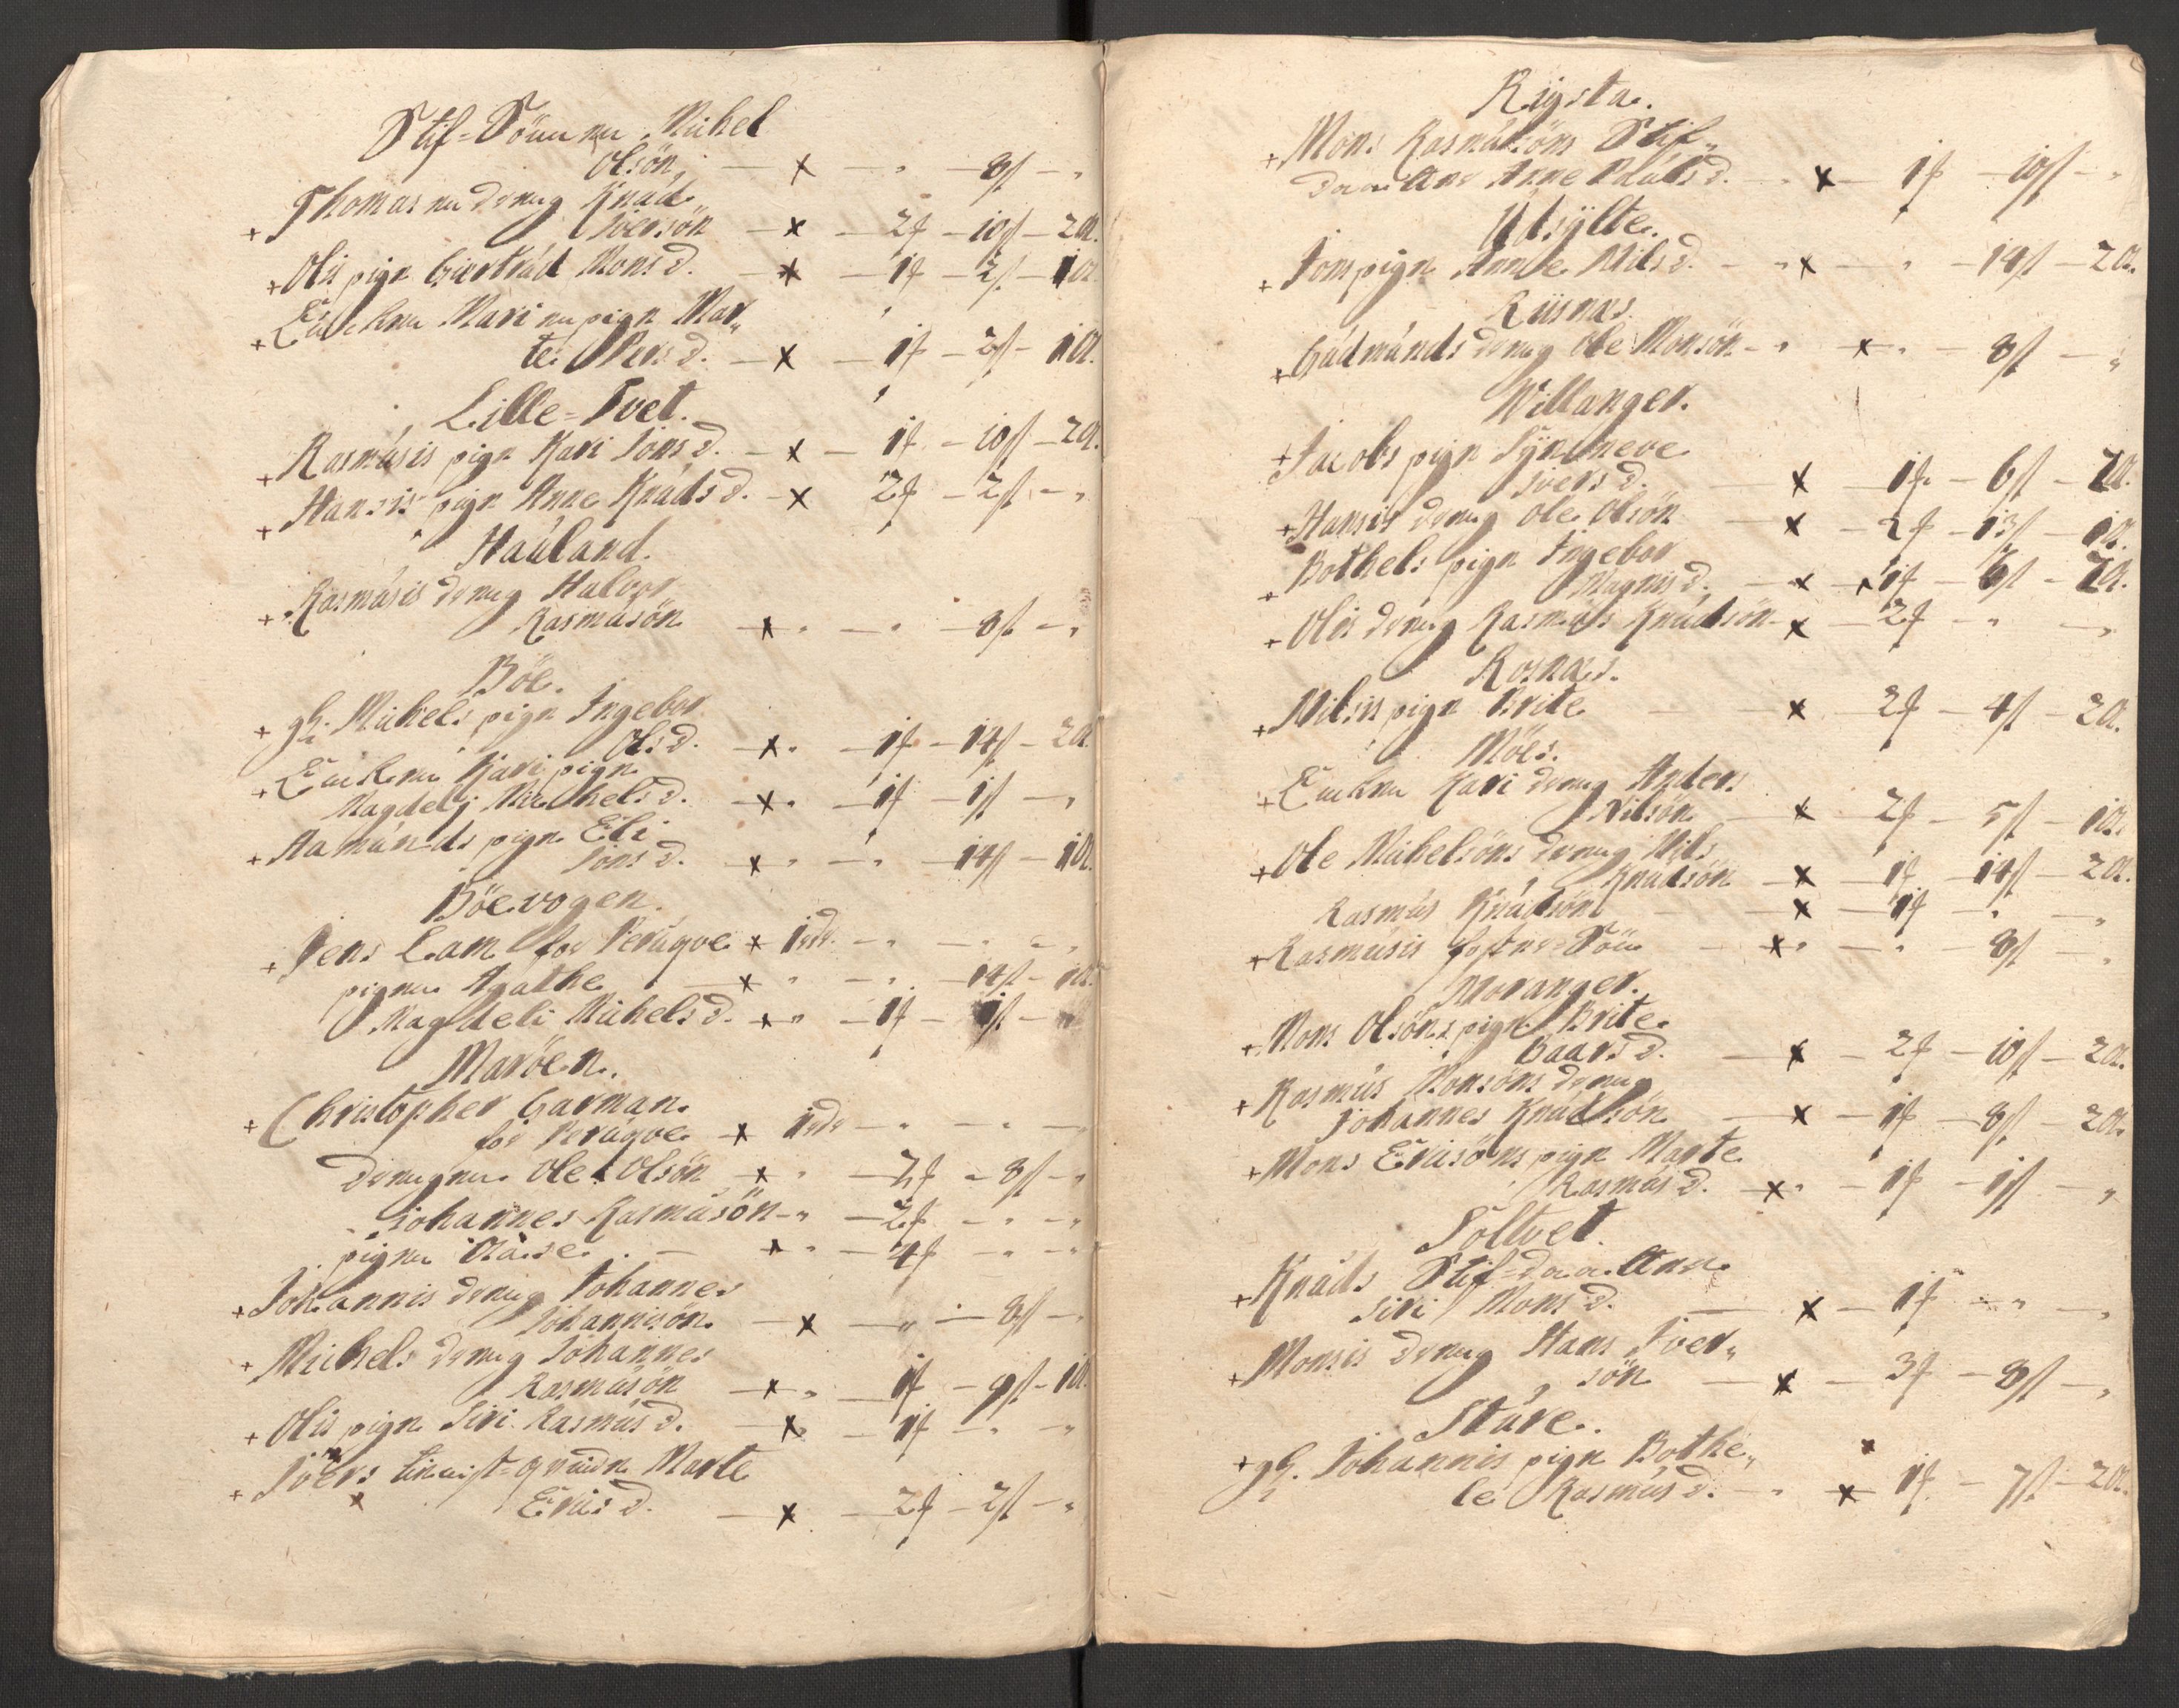 Stif-Sönnen Michel
Olsön, — x — „ — 8ß — „
+ Thomas nu dreng Knúd
Iversön — x — 2f — 10ß — 2a.
+ Olis pign Giertrúd Mons d. — x — 1f — 2ß — 1a.
+ Encken Mari nu pign Mar„
te Pers d. — x — 1f — 2ß — 1a.
Lille-Tvet.
+ Rasmúsis pign Kari Jons d. — x — 1f — 10ß — 2a.
+ Hansis pign Anne Knúds d. — x 2f — 2ß — „
Haúland.
+ Rasmúsis dreng Halvor
Rasmúsön x „ — „ — 8ß — „
Böe.
+ gl. Michels pign Ingebor
Ols d. — x „ — 1f — 14ß — 2a.
+ Encken Kari pign
Magdelj Michels d. — x „ — 1f — 1ß — „
+ Aamúnds pign Eli
Jons d. — x „ — „ — 14ß — 1a.
Böevogen.
+ Jens Lam for Perúqve x 1rdr. — „ — „ — „
pigen Agathe — x „ — „ — 14ß — 1a.
Magdeli Michels d. — x „ — 1f — 1ß —
Maröen.
+ Christopher Garman
for Perúqve — x 1rdr — „ — „ — „
drengen Ole Olsön — x „ — 2f — 8ß — „
Johannes Rasmúsön — „ — 2f — „ — „
pigen — x „ — 4f — „ — „
+ Johannis dreng Johannes
Johannisön — x — „ — 8ß — „
+ Michels dreng Johannes
Rasmúsön — x „ — 1f — 9ß — 1a.
+ Olis pign Siri Rasmús d. — x — 1f — „ — „
+ Ivers Marte
x Eriis d. — x — 2f — 2ß — „
Rijsta.
+ Mons Rasmúsöns Stif„
Anne d. „ x — 1f — 10ß — „
Udsÿlte.
+ Jons pign Anne Nils d. — „ x — „ — 14ß — 2a.
Riisnes.
+ Gúdmúnds dreng Ole Monsön — „ x — „ — 8ß — „
Villanger.
+ Jacobs pign Sÿnneve
Ivers d. — x — 1f — 6ß — 2a.
+ Hansis dreng Ole Olsön — x — 2f — 13ß — 1a.
+ Bothels pign Ingebor
Magnis d. — x — 1f — 6ß — 2a.
+ Olis dreng Rasmús Knúdsön — x — 2f — „ — „
Rosnæs.
+ Nilsis pign Brite — x 2f — 4ß — 2a.
Möes.
+ Encken Kari dreng Anders
Nilsön — x 2f — 5ß — 1a.
+ Ole Michelsöns dreng Nils
Knúdsön — x — 1f — 14ß — 2a.
Rasmús Knúdsön — x — 1f — „ — „
+ Rasmúsis foster Sön — x „ — „ — 8ß — „
Moranger.
+ Mons Olsöns pign Brite
Baars d. — x — 2f — 10ß — 2a.
+ Rasmús Monsöns dreng
Johannes Knúdsön — x — 1f — 8ß — 2a.
+ Mons Eriisöns pign Marte
Rasmús d. — x „ — 1f — 1ß — „
Toltvet.
+ Knúds Stif-
Siri Mons d. — x — 1f — „ — „
+ Monsis dreng Hans Iver„
sön — x — 3f — 8ß — „
Stúre.
+ gl. Johannis pign Bothe„ x
le Rasmús d. — „ x — 1f — 7ß — 2a.